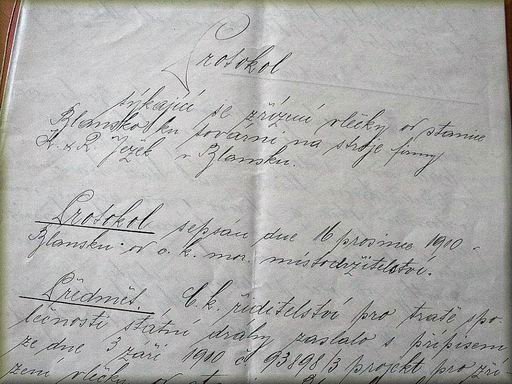 Protokol
týkající se zřízení vlečky od stanice
Blansko ku továrni na stroje firmy
K. & R. Ježek v Blansku.
Protokol sepsán dne 16 prosince 1910 v
Blansku od c. k. mor. místodržitelství.
Předmět. C. k. ředitelství pro tratě spo-
lečnosti státní dráhy zaslalo s přípisem
ze dne 3 září 1910 čís 93898/3 projekt pro zří-
zení vlečky